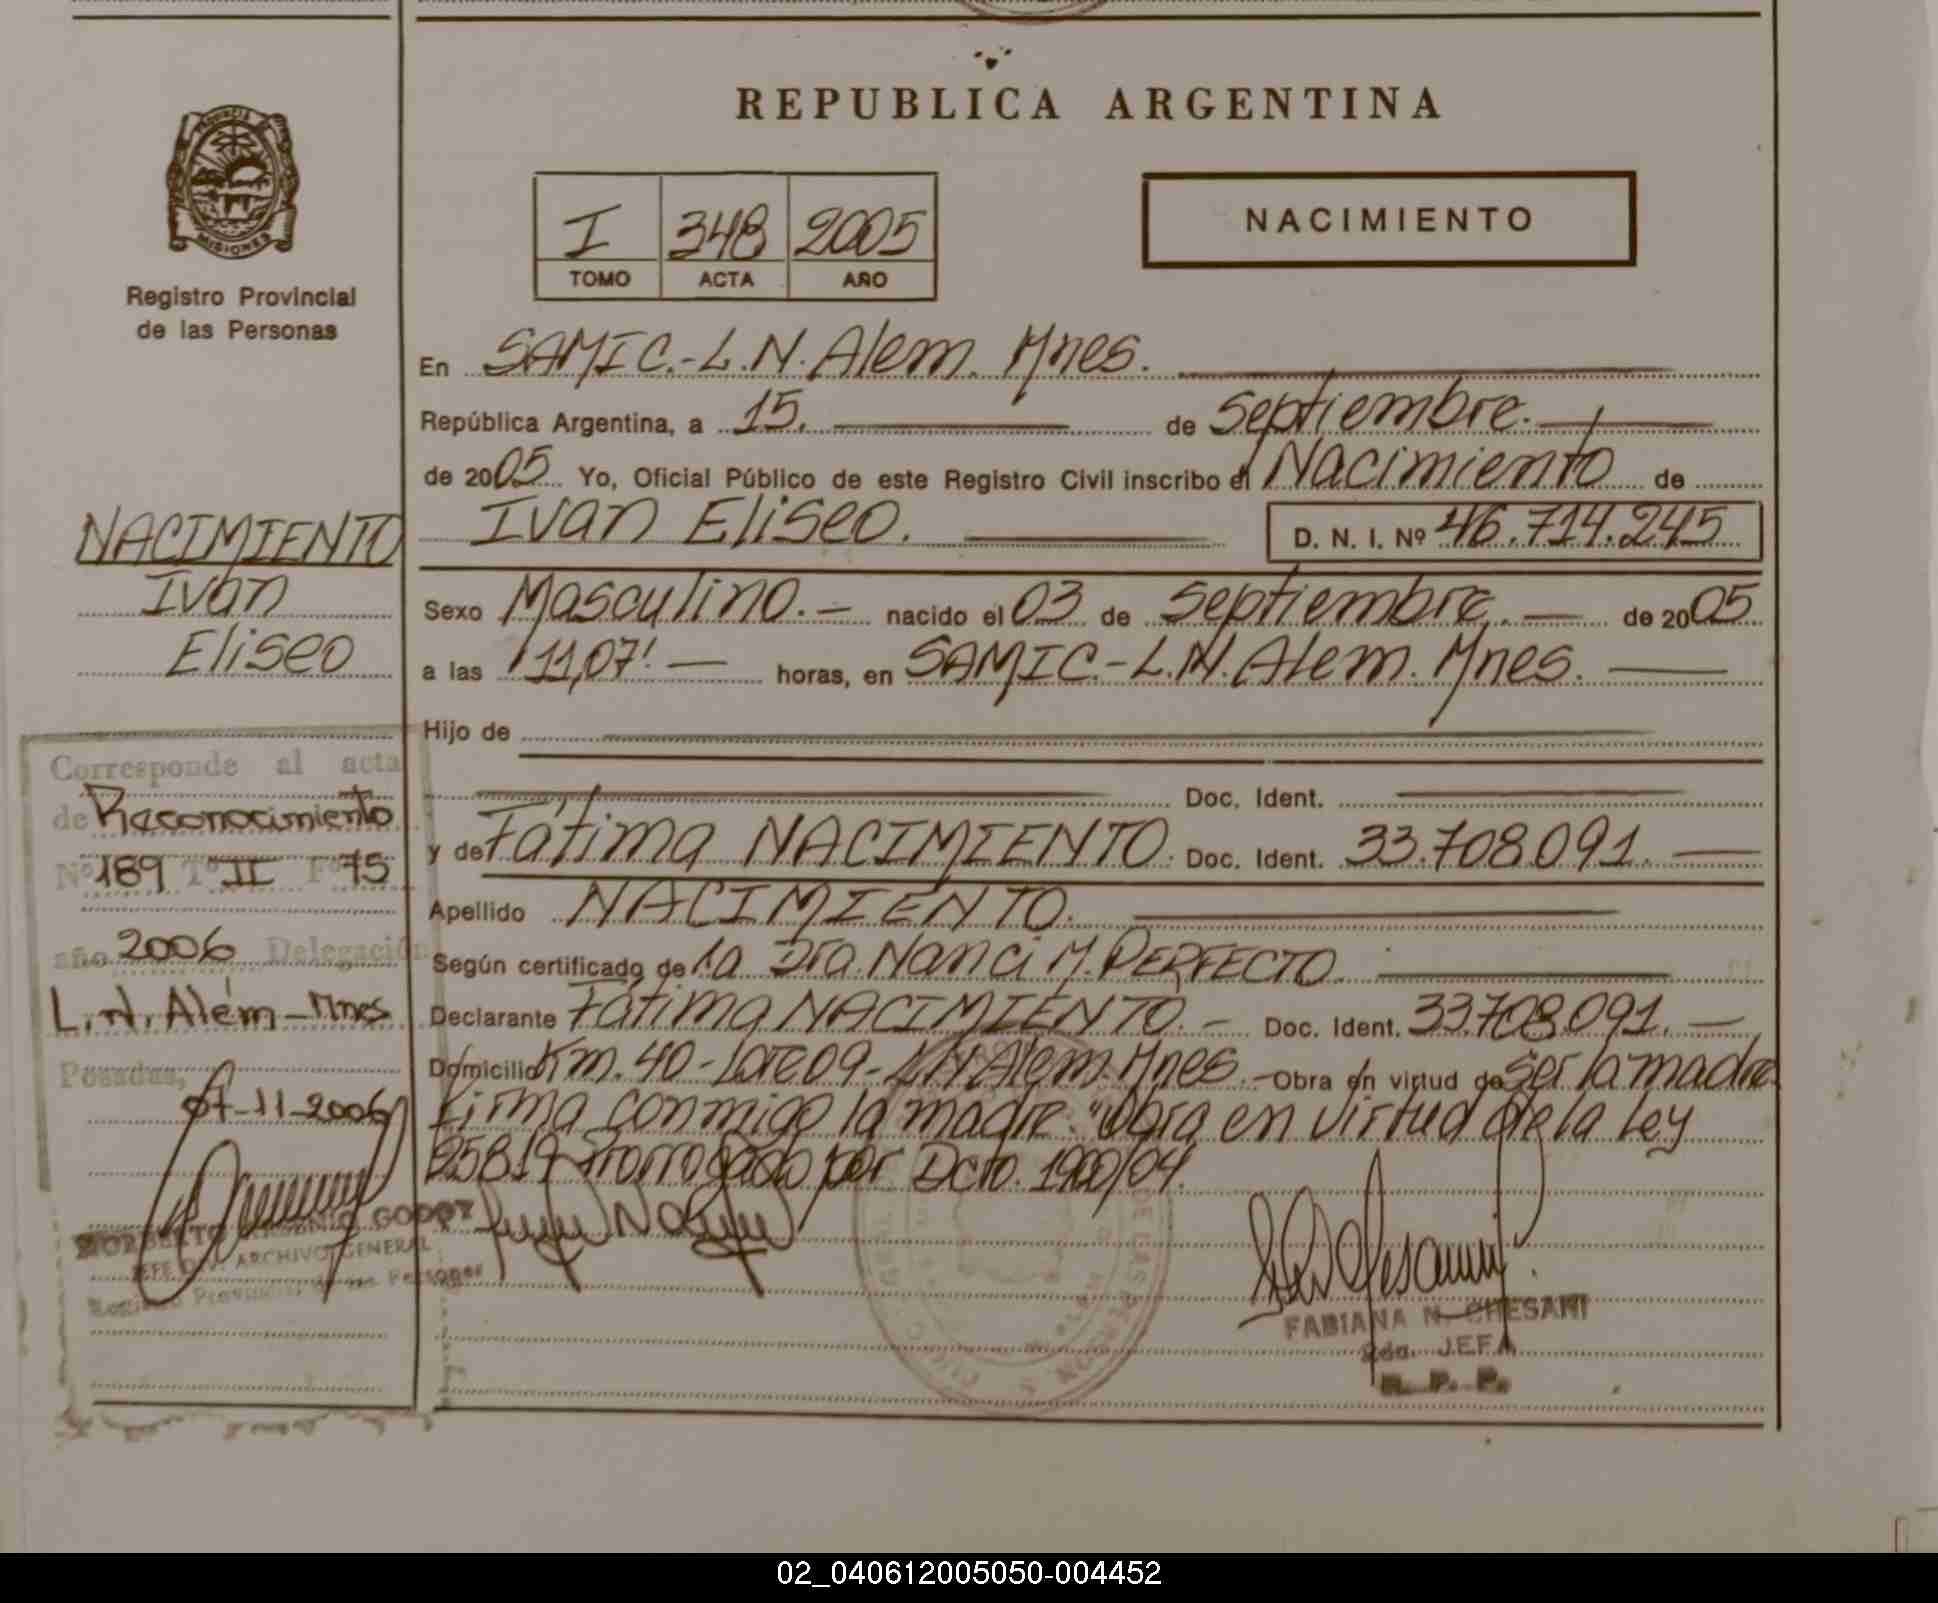 REPUBLICA ARGENTINA
PROVINCIA
MISIONES
Registro Provincial
de las Personas
I 348 2005
TOMO ACTA AÑO
NACIMIENTO
En SAMIC.-L.N. Alem. Mnes.
República Argentina, a 15. de Septiembre.
de 2005 Yo, Oficial Público de este Registro Civil inscribo el Nacimiento de
Ivan Eliseo. D. N. I. Nº 46.714.245
Sexo Masculino.- nacido el 03 de Septiembre.- de 2005
a las 11,07' - horas, en SAMIC.-L.N. Alem. Mnes.
Hijo de
Doc. Ident.
y de Fátima NACIMIENTO. Doc. Ident. 33.708.091.
Apellido NACIMIENTO.
Según certificado de la Dra. Nanci M. PERFECTO
Declarante Fátima NACIMIENTO.- Doc. Ident. 33.708.091.-
Domicilio Km. 40-Lote 09-L.N Alem. Mnes.- Obra en virtud de ser la madre
Firma conmigo la madre. "Obra en virtud de la Ley
25819 Prorrogado por Dcto. 1900/04.
FABIANA N. CHESANI
2da. JEFA
R. P. P.
NACIMIENTO
Ivan
Eliseo
Corresponde al acta
de Reconocimiento
Nº 189 Tº II Fº 75
año 2006 Delegación
L.N. Alem-Mnes
Posadas,
07-11-2006
NORBERTO ARSENIO GODOY
JEFE DIV. ARCHIVO GENERAL
Registro Provincial de las Personas
02_040612005050-004452